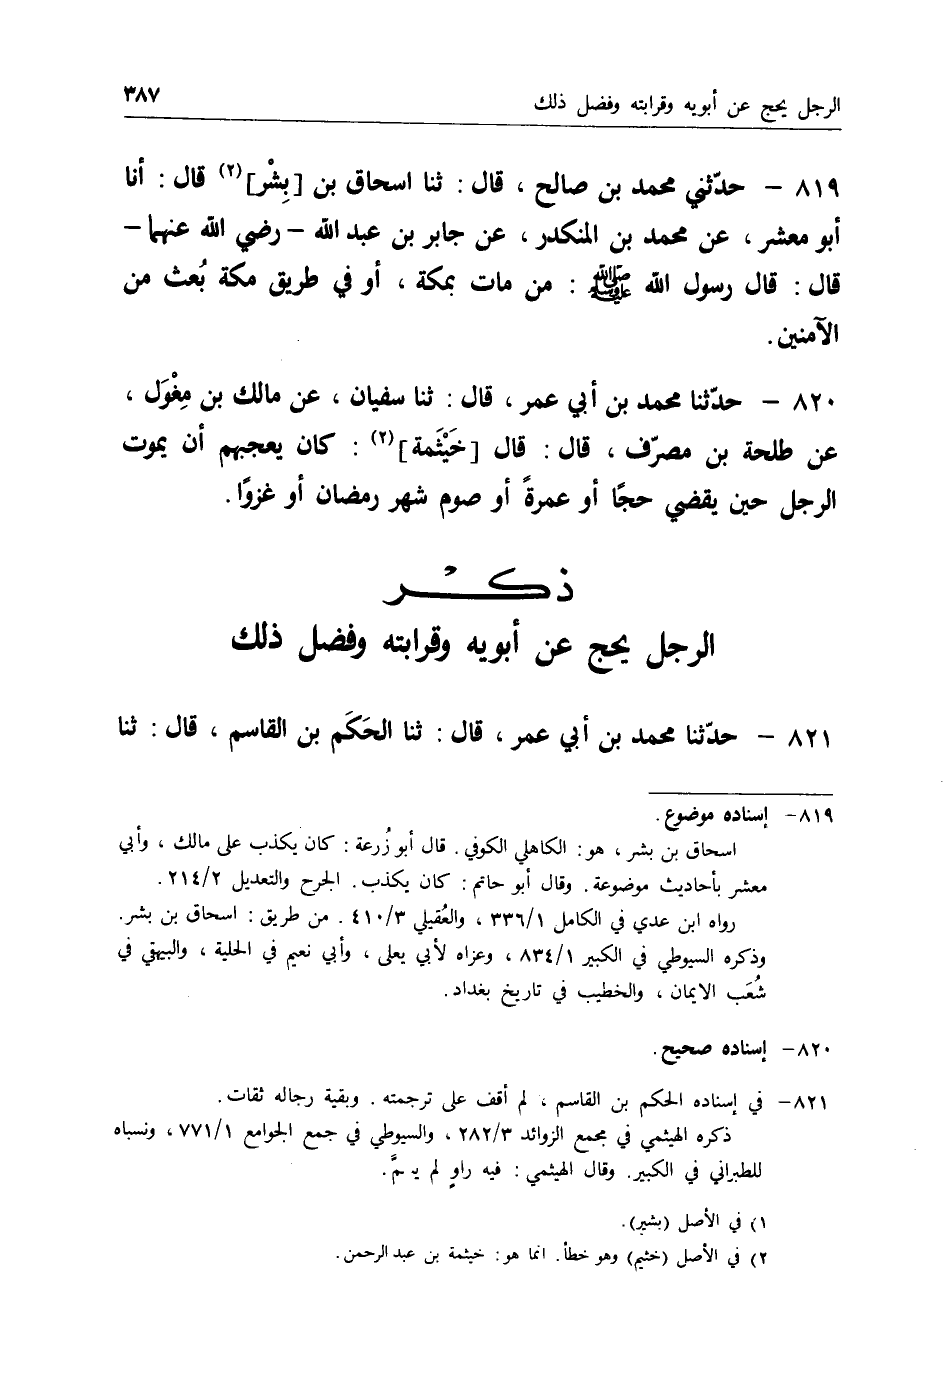 الرجل يحج عن أبويه وقرابته وفضل ذلك ٣٨٧
٨١٩ – حدّثني محمد بن صالح ، قال : ثنا اسحاق بن [بِشْر](٢) قال : أنا
أبو معشر ، عن محمد بن المنكدر ، عن جابر بن عبد الله –رضي الله عنهما–
قال : قال رسول الله ﷺ : من مات بمكة ، أو في طريق مكة بُعث من
الآمنين.
٨٢٠ – حدّثنا محمد بن أبي عمر ، قال : ثنا سفيان ، عن مالك بن مِغْوَل ،
عن طلحة بن مصرّف ، قال : قال [خَيْثَمة](٢) : كان يعجبهم أن يموت
الرجل حين يقضي حجًا أو عمرةً أو صوم شهر رمضان أو غزوًا.
ذكْر
الرجل يحج عن أبويه وقرابته وفضل ذلك
٨٢١ – حدّثنا محمد بن أبي عمر ، قال : ثنا الحَكَم بن القاسم ، قال : ثنا
٨١٩– إسناده موضوع.
اسحاق بن بشر ، هو : الكاهلي الكوفي. قال أبو زُرعة : كان يكذب على مالك ، وأبي
معشر بأحاديث موضوعة. وقال أبو حاتم : كان يكذب. الجرح والتعديل ٢١٤/٢.
رواه ابن عدي في الكامل ٣٣٦/١ ، والعُقيلي ٤١٠/٣ . من طريق : اسحاق بن بشر.
وذكره السيوطي في الكبير ٨٣٤/١ ، وعزاه لأبي يعلى ، وأبي نعيم في الحلية ، والبيهقي في
شُعَب الايمان ، والخطيب في تاريخ بغداد.
٨٢٠– إسناده صحيح.
٨٢١– في إسناده الحكم بن القاسم ، لم أقف على ترجمته. وبقية رجاله ثقات.
ذكره الهيثمي في مجمع الزوائد ٢٨٢/٣ ، والسيوطي في جمع الجوامع ٧٧١/١ ، ونسباه
للطبراني في الكبير. وقال الهيثمي : فيه راوٍ لم يسمَّ.
١) في الأصل (بشير).
٢) في الأصل (خثيم) وهو خطأ. انما هو : خيثمة بن عبد الرحمن.